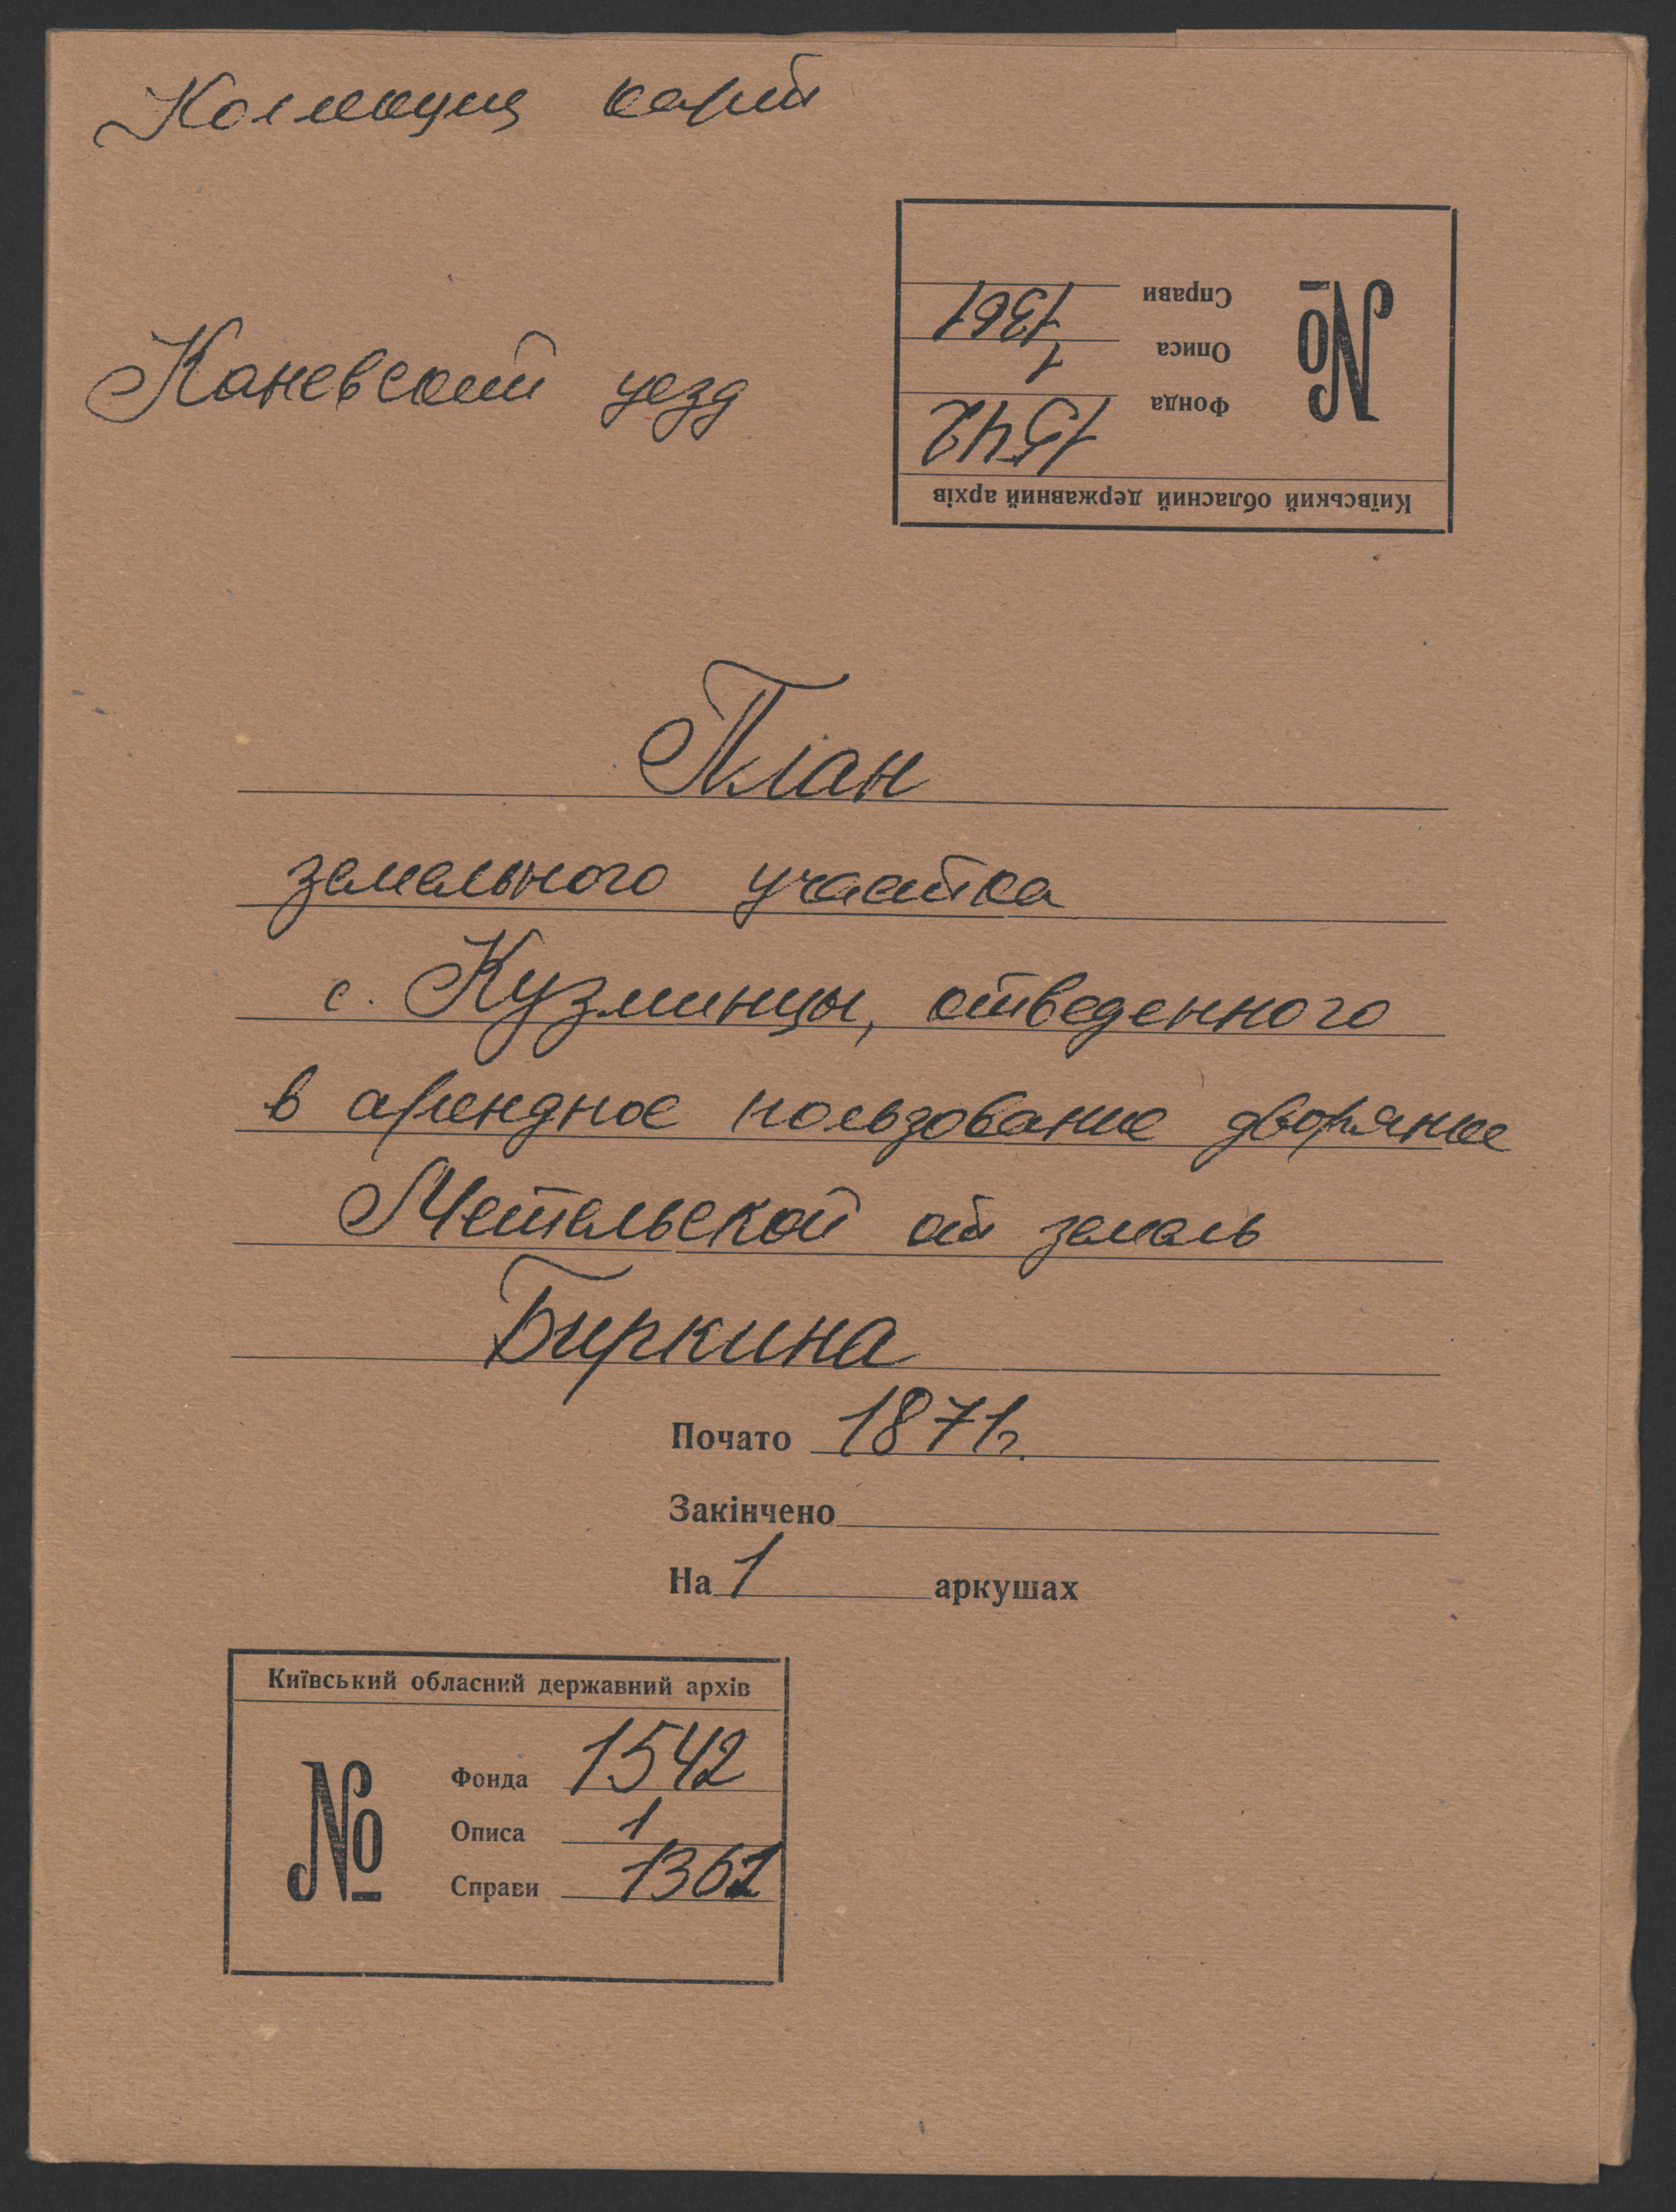 Коллекция карт
Каневский уезд
Київський обласний державний архів
№
Фонда 1542
Описа 1
Справи 1361
План
земельного участка
с. Кузминцы, отведенного
в арендное пользование дворянке
Метельской от земель
Биркина
Почато 1871г.
Закінчено
На 1 аркушах
Київський обласний державний архів
№
Фонда 1542
Описа 1
Справи 1361